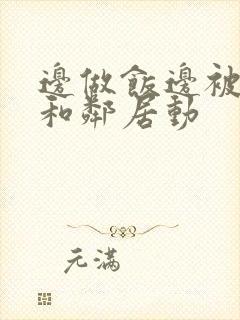 邊做飯邊被
和鄰居動
元滿